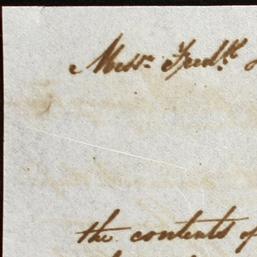 Messrs. Fredk.
the contents of